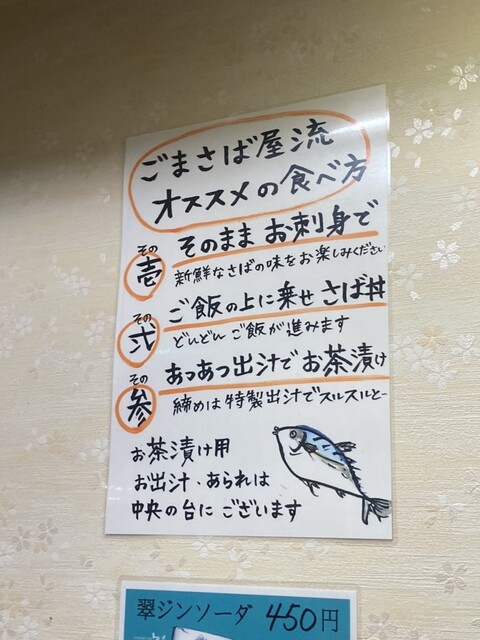 ごまさば屋流
オススメの食べ方
その壱 そのまま お刺身で
新鮮なさばの味をお楽しみください
その弐 ご飯の上に乗せ さば丼
どんどん ご飯が進みます
その参 あつあつ出汁で お茶漬け
締めは特製出汁でスルスルとー
お茶漬け用
お出汁、あられは
中央の台にございます
翠ジンソーダ 450円